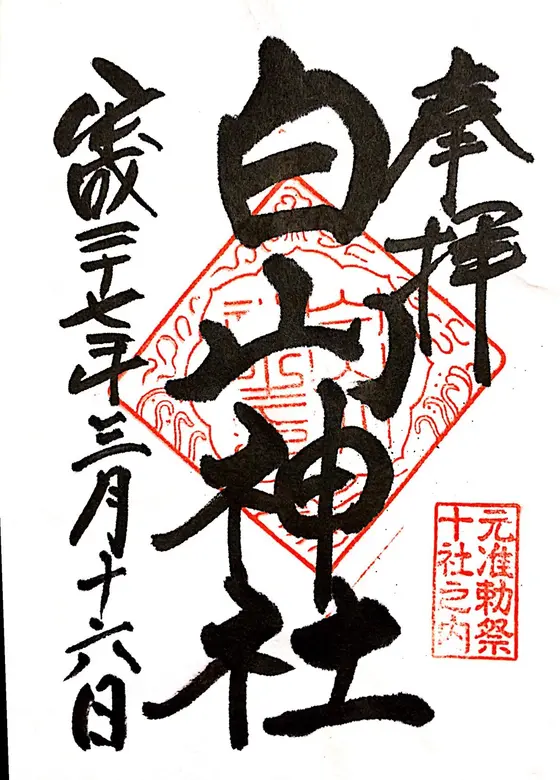 奉拝
白山神社
元准勅祭
十社之内
平成二十七年三月十六日